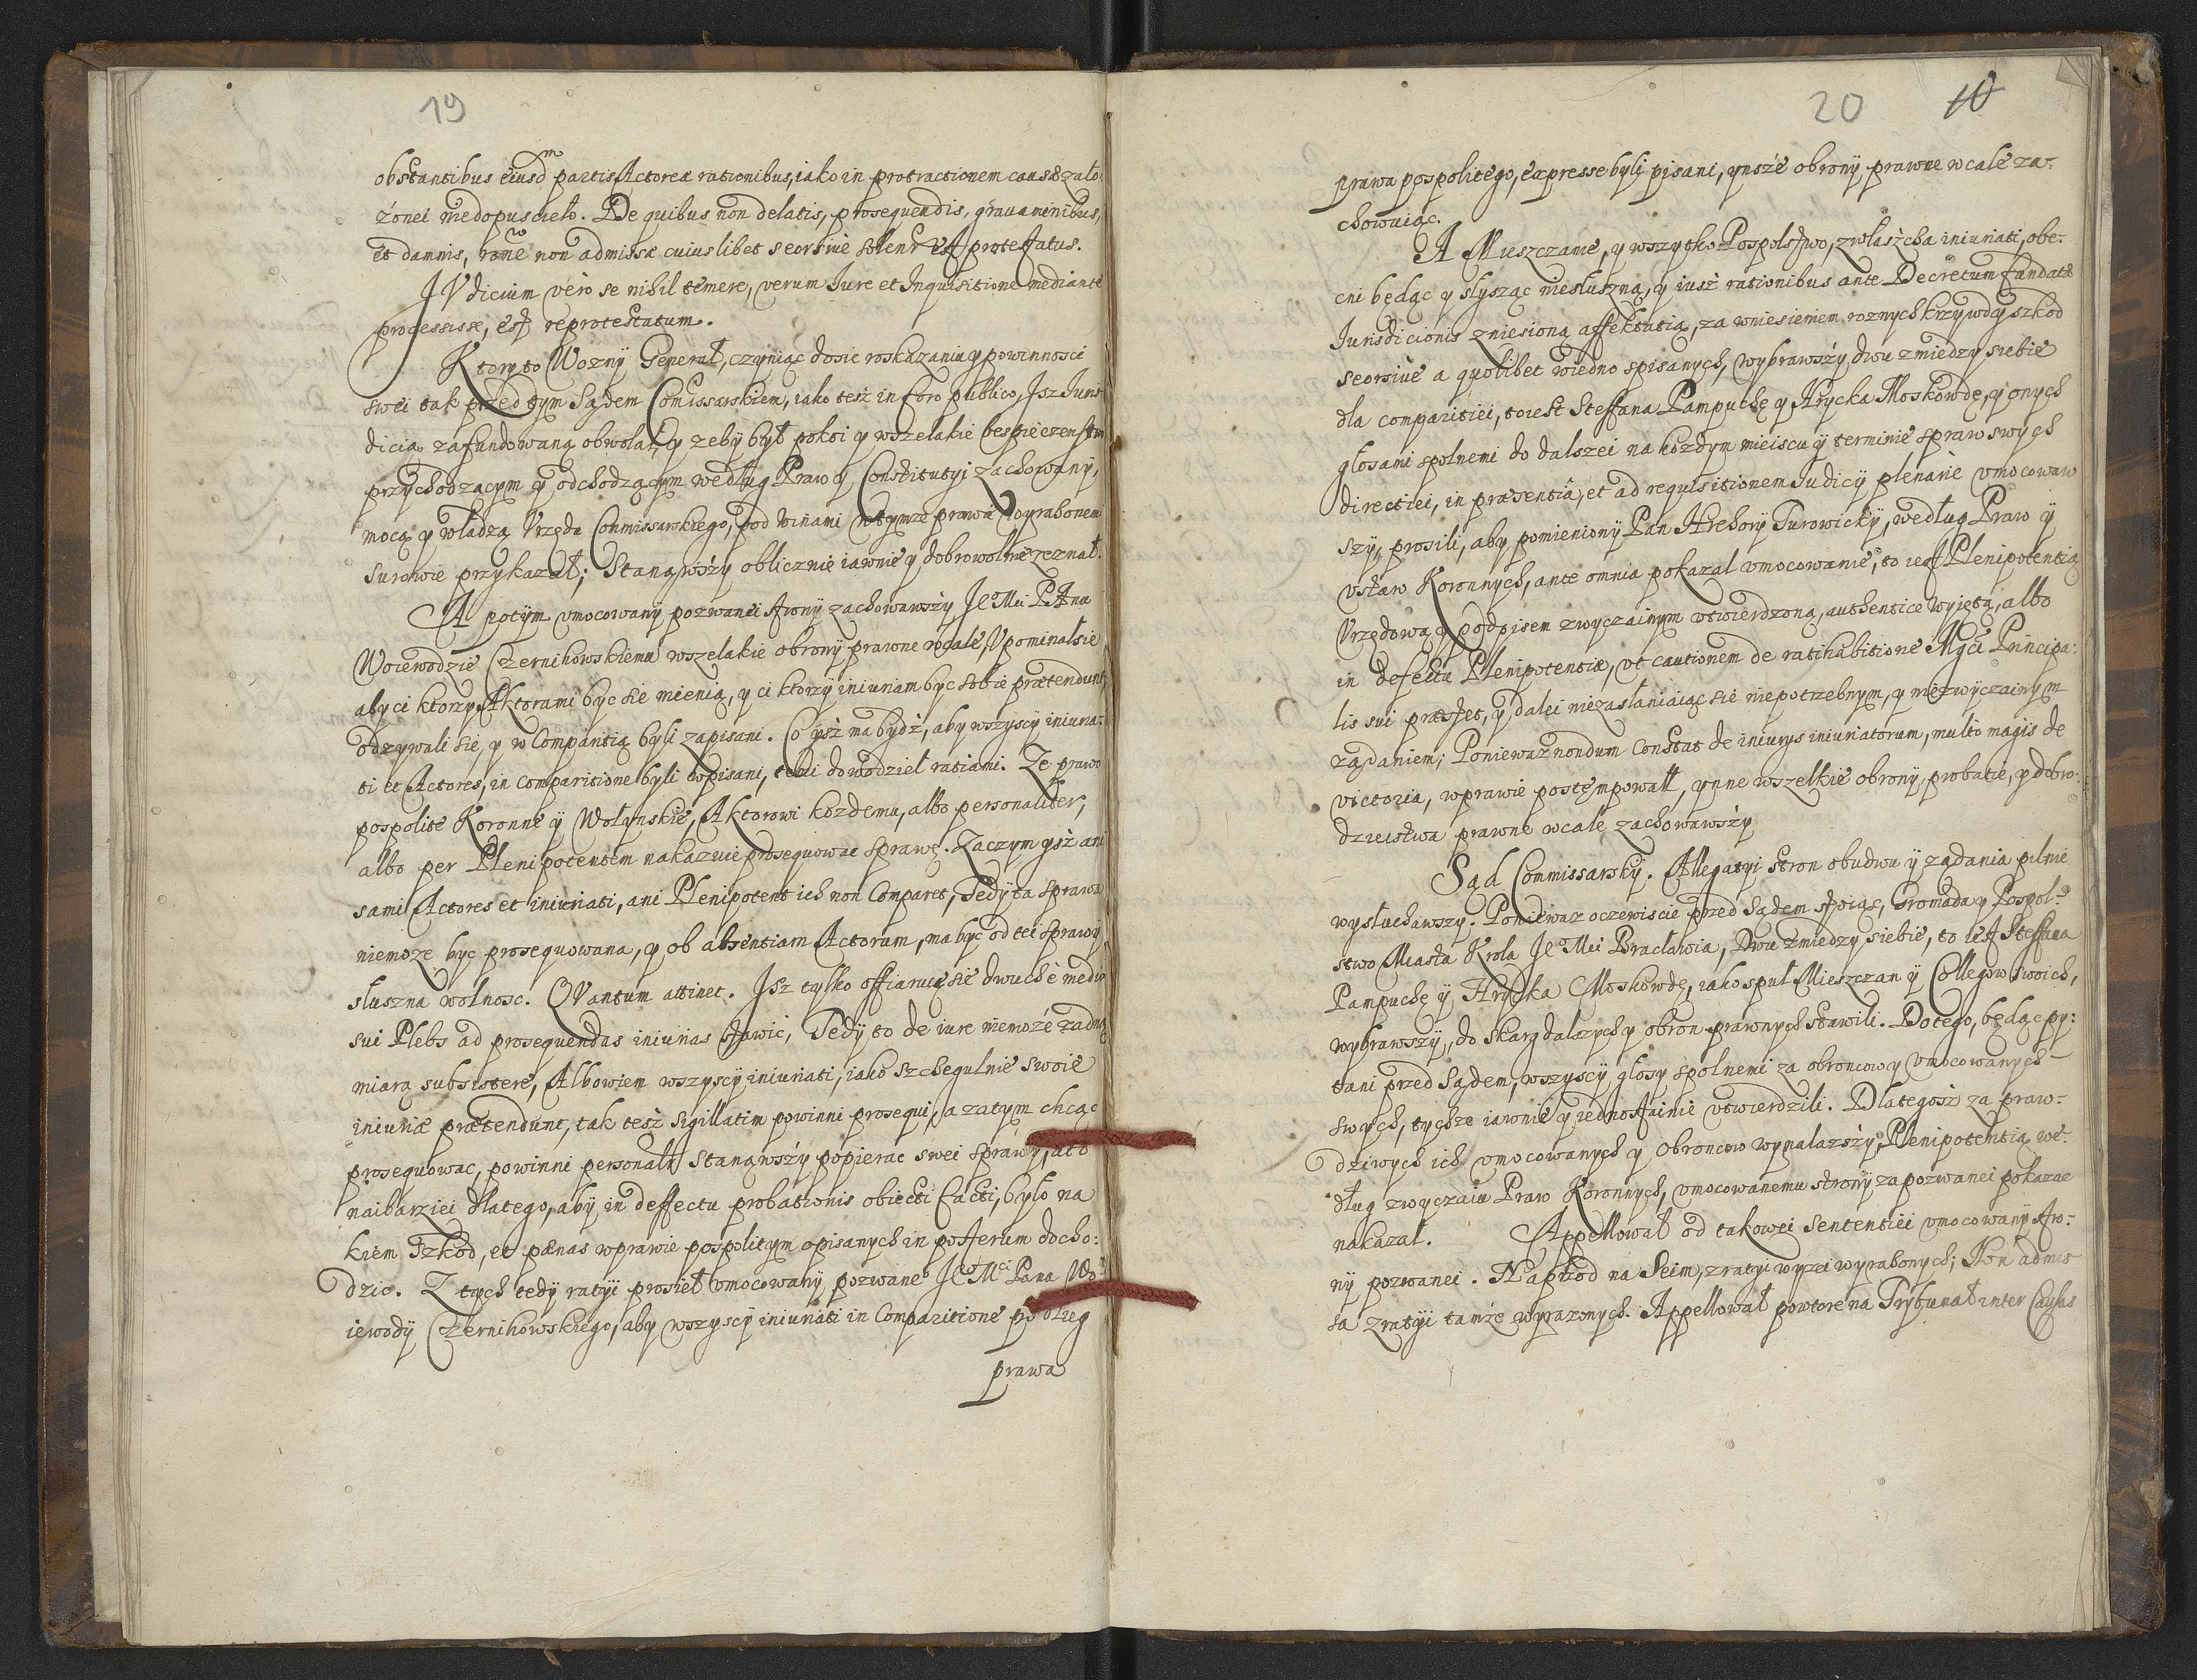 19
obstantibus eiusdm partis Actoreæ rationibus, iako in protractionem causæ zało
żonei niedopuscieło. De quibus non delatis, prosequendis, grauaminibus,
et damnis, rone non admissæ cuiuslibet seorsiuè solenr est protestatus.
IVdicium verò se nihil temere, verum Iure et Inquisitione mediante
processisse, est reprotestatum.
Ktory to Wozny General, czyniąc dosic roskazaniu y powinnosci
swei tak przed tym Sądem Comissarskiem, iako tesz in foro publico, Isz Iuris
dicią zafundowaną obwołał, y zeby był pokoi y wszelakie bespieczenstwo
przychodzącym y odchodzącym według Praw y Constitutyi zachowany,
mocą y władzą Vrzędu Commissarskiego, pod winami w tymze prawie wyrażonemi
surowie przykazał; Stanąwszy oblicznie iawnie y dobrowolnie zeznał.
A potym vmocowany pozwanei strony zachowawszy Je° Mći PAnæ
Woiewodzie Czernihowskiemu wszelakie obrony prawne wcale, Vpominał sie
aby ci ktorzy Aktorami byc sie mienią, y ci ktorzy iniuriam byc sobie prætendunt,
odzywali sie, y w Comparitią byli zapisani. Co ysz ma bydź, aby wszyscy iniuria-
ti et Actores, in comparitione byli wpisani, temi dowodzieł ratiami. Ze prawo
pospolite Koronne y Wołynskie, Aktorowi kozdemu, albo personaliter,
albo per Plenipotentem nakazuie prosequowac sprawę. Zaczym ysz ani
sami Actores et iniuriati, ani Plenipotent ich non Comparet, Tedy ta sprawa
niemoze byc prosequowana, y ob absentiam Actorum, ma byc od tei sprawy
słuszna wolnosc. QVantum attinet. Isz tylko offiaruie sie dwuch è medio
sui Plebs ad prosequendas iniurias stawic, Tedy to de iure niemoże żadną
miarą subsistere, Albowiem wszyscy iniuriati, iako szchegulnie swoie
iniuriæ prætendunt, tak tesz sigillatim powinni prosequi, a zatym chcąc
prosequowac, powinni personalr stanąwszy popierac swei sprawy, a to
naibarziei dlatego, aby in deffectu probationis obiecti facti, było na
kiem szkod, et pœnas w prawie pospolitym opisanych in posterum docho-
dzic. Z tych tedy ratyi prosieł vmocowany pozwane° Je° Mći Pana Wo-
iewody Czernihowskiego, aby wszyscy iniuriati in Comparitione podług
prawa
20 10
prawa pospolitego, expresse byli pisani, ynsze obrony prawne wcale za-
chowuiąc.
A Mieszczanie, y wszytko Pospolstwo, zwłaszcha iniuriati, obe-
cni będąc y słysząc niesłuszną, y iusz rationibus ante Decretum fundatæ
Iurisdicionis zniesioną affektatią, za wniesieniem roznych krzywd y szkod
seorsiuè a quolibet wiedno spisanych, wybrawszy dwu zmiedzy siebie
dla comparitiei, to iest Steffana Pampuchę y Hrycka Moskowdę, y onych
głosami spolnemi do dalszei na kozdym mieiscu y terminie spraw swych
directiei, in præsentiâ, et ad requisitionem Iudicij plenariè vmocowaw
szy, prosili, aby pomieniony Pan Hrehory Turowicky, według Praw y
vstaw Koronnych, ante omnia pokazal vmocowanie, to iest Plenipotentią
Vrzędową y podpisem zwyczainym vtwierdzoną, authenticè wyiętą, albo
in defectu Plenipotentiæ, vt cautionem de ratihabitione Mgci Principa-
lis sui præstet, y dalei niezasłaniaiąc sie niepotrzebnym, y niezwyczainym
ządaniem, Poniewaz nondum constat de iniurys iniuriatorum, multò magis de
victoria, w prawie postęmpowałł, ynne wszelkie obrony, probatie, y dobro-
dzieistwa prawne wcale zachowawszy
Sąd Commissarsky. Allegatyi stron obudwu y ządania pilnie
wysłuchawszy. Poniewaz oczewiscie przed Sądem stoiąc, Gromada y Pospol-
stwo Miasta Krola Je° Mći Bracławia, Dwu zmiedzy siebie, to iest Steffana
Pampuchę y Hrycka Moskowdę, iako społ Mieszczan y Collegow swoich,
wybrawszy, do skarg dalszych y obron prawnych stawili. Dotego, będąc py-
tani przed Sądem, wszyscy głosy spolnemi za obroncow y vmocowanych
swych, tychze iawnie y iednostainie vtwierdzili. Dlategosz za praw-
dziwych ich vmocowanych y Obroncow wynalazszy, Plenipotentią we-
dług zwyczaiu Praw Koronnych, vmocowanemu strony zapozwanei pokazac
nakazał. Appellował od takowei sententiei vmocowany stro-
ny pozwanei. Naprzod na Seim, z ratyi wyzei wyrażonych; Non admis
sa z ratyi tamże wyrazonych. Appellował powtore na Trybunał inter Causas